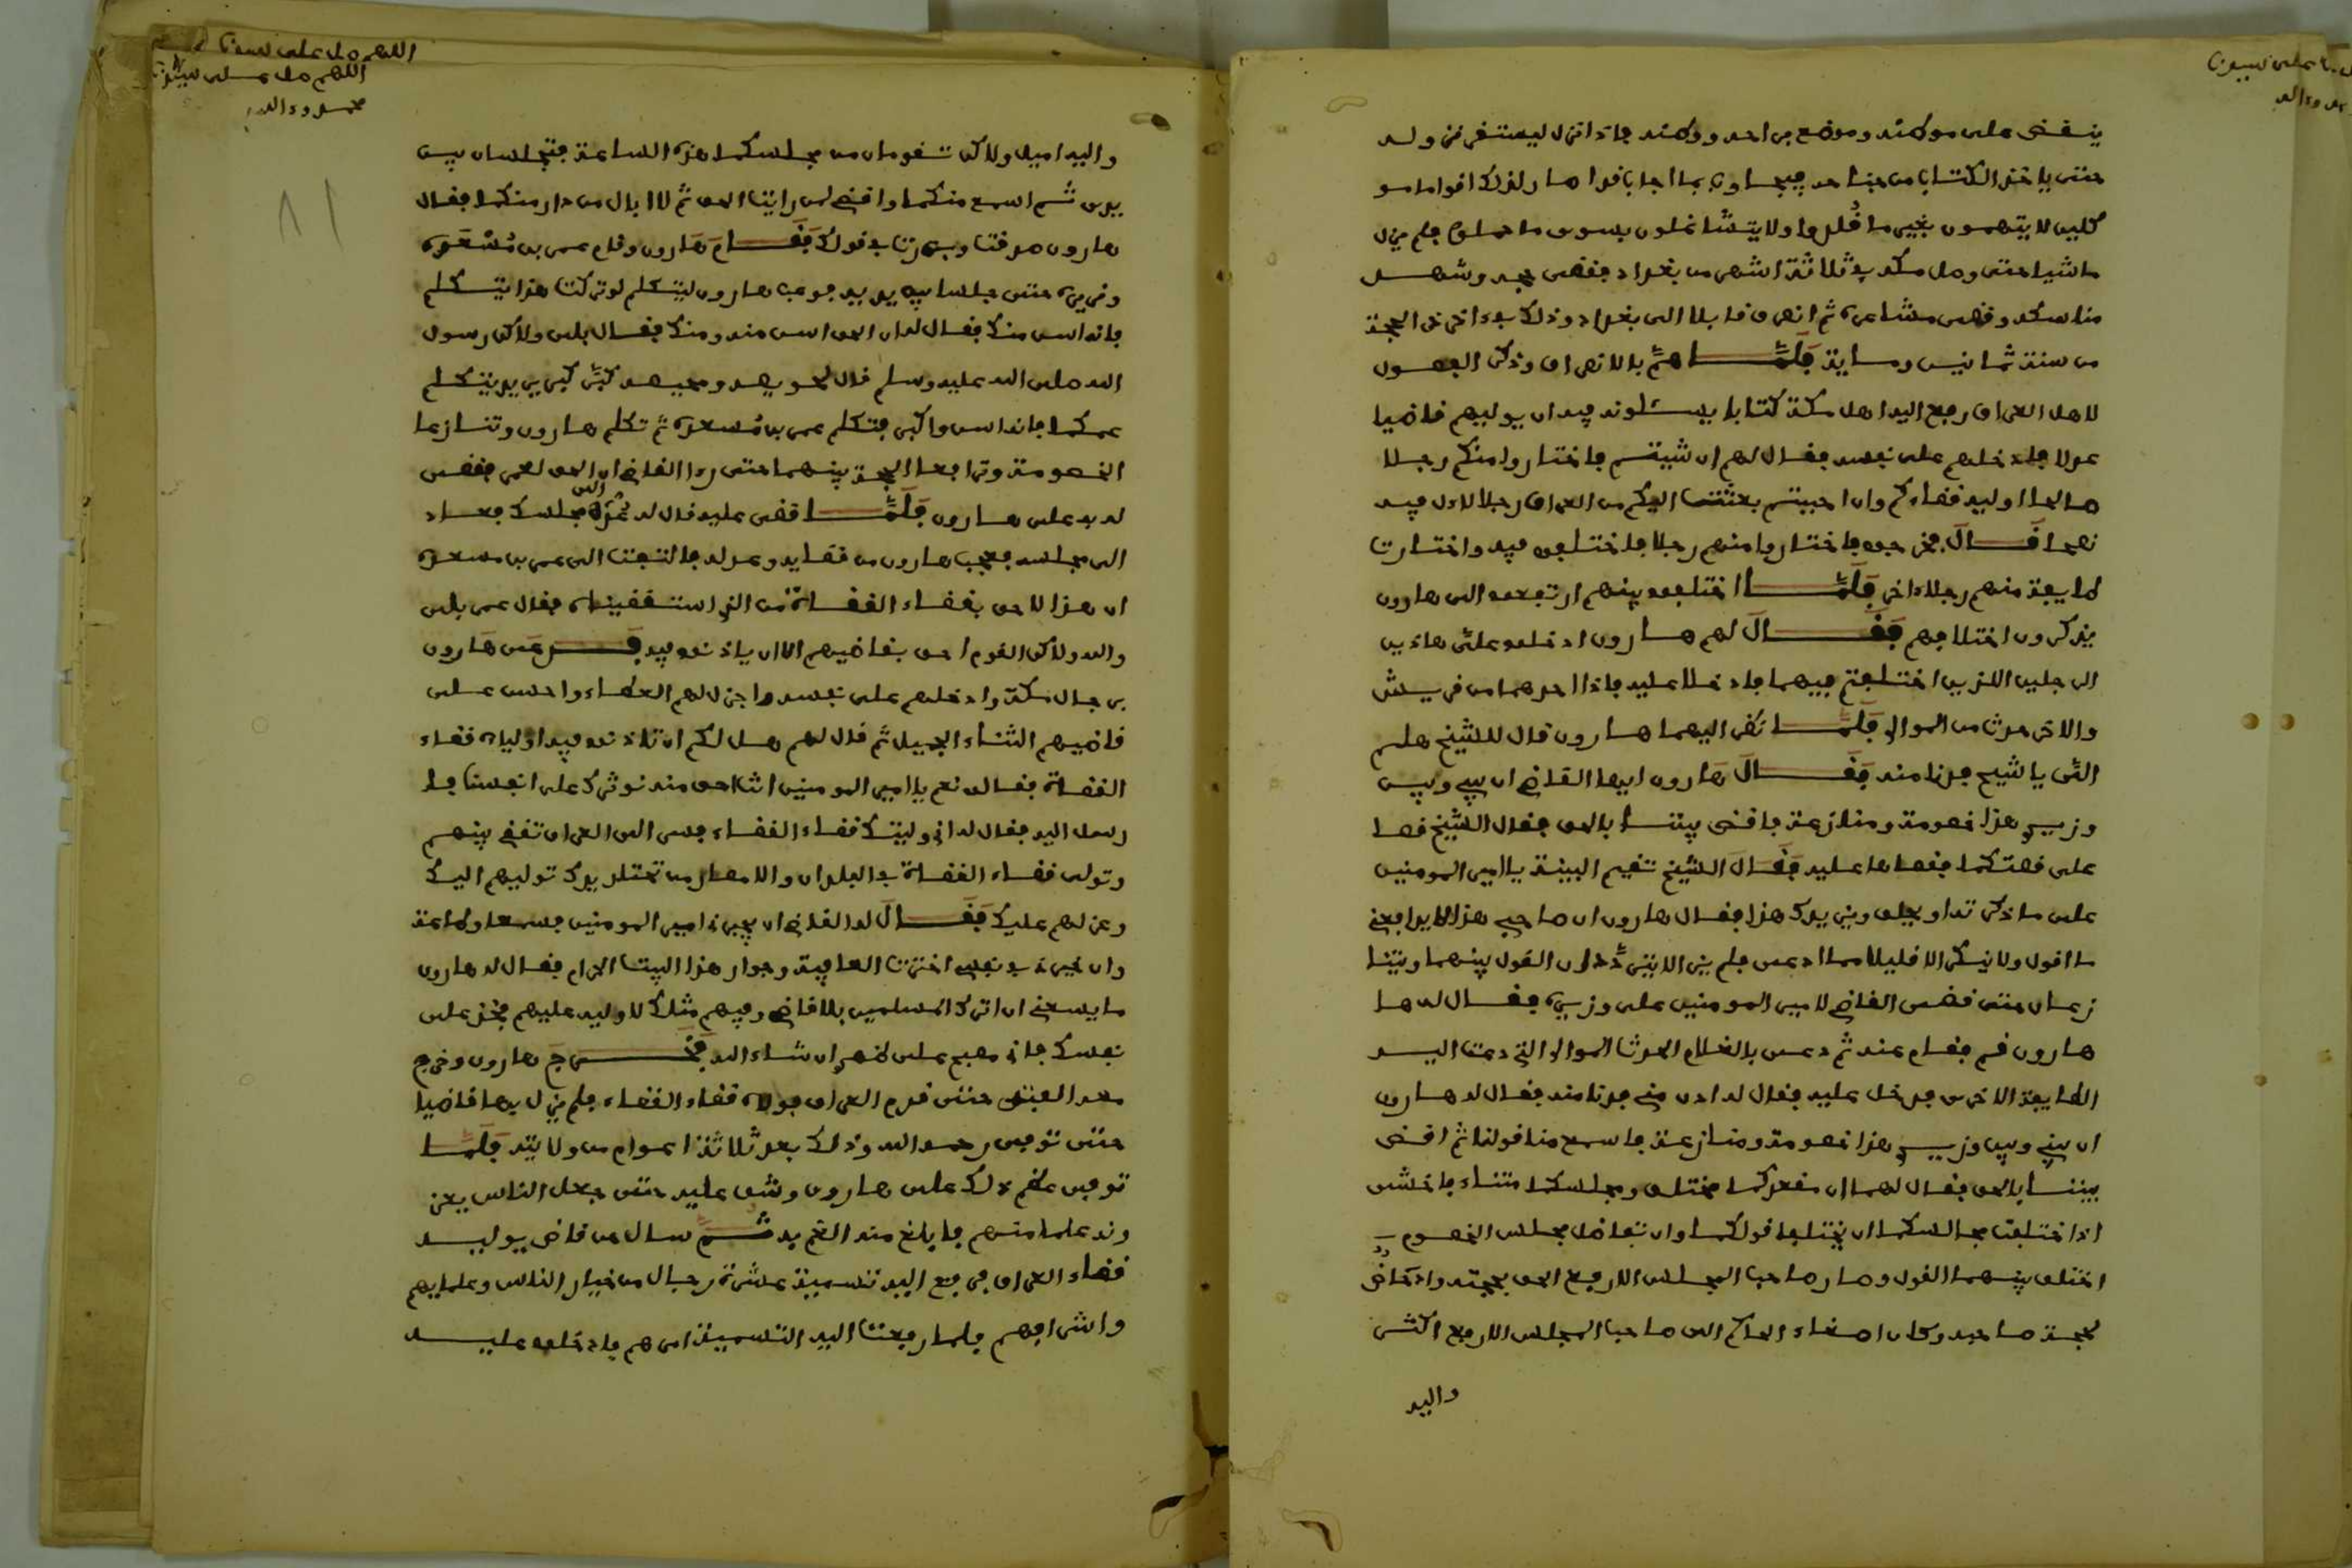 ينقضي على موطئه وموضع من احد ووطئه فاذا نزل ليستقر نزوله
حتى ياخذ الكتاب من جناحه فيجاوب بما اجابا قد اصار لذلك اقواما مو
كلين لا يتهمون بغير ما قلدوا ولا يتشاغلون بسوى ما حملوا فلم يزل
ماشيا حتى وصل مكة في ثلاثة اشهر من بغداد فقضى حجه وشهد
مناسكه وقضى مشاعره ثم انصرف قابلا الى بغداد وذلك في اخر ذي الحجة
من سنة ثمانين وماية فلما هم بالانصراف وذكر القفول
لاهل العراق رفع اليه اهل مكة كتابا يسئلونه فيه ان يوليهم قاضيا
عدلا فادخلهم على نفسه فقال لهم ان شيتم فاختاروا منكم رجلا
صالحا اوليه قضاءكم وان احببتم بعثت اليكم من العراق رجلا لاءل فيه
نصحا قال فخرجوا فاختاروا منهم رجلا فاختلفوا فيه واختارت
طايفة منهم رجلا اخر فلما اختلفوا بينهم ارتفعوا الى هارون
يذكرون اختلافهم فقال لهم هارون ادخلوا علي هاذين
الرجلين اللذين اختلفتم فيهما فادخلا عليه فاذا احدهما من قريش
والاخر حدث من الموالي فلما نظر اليهما هارون قال للشيخ هلم
الي يا شيخ فدنا منه فقال هارون ايها القاضي ان بيني وبين
وزيري هذا خصومة ومنازعة فاقض بيننا بالحق فقال الشيخ قصا
علي قصتكما فقصاها عليه فقال الشيخ تقيم البينة يا امير المومنين
على ما ذكرته او يحلف وزيرك هذا فقال هارون ان صاحبي هذا لا يدافعني
ما اقول ولا ينكر الا قليلا مما ادعي فلم يزالا يترددان القول بينهما وبيننا
زعما ان حتى قضى القاضي لامير المومنين على وزيره فقال له ها
هارون قم فقام عنه ثم دعى بالغلام الحدث الموالي التي دعت اليه
الطايفة الاخرى فدخل عليه فقال له ادن مني فدنا منه فقال له هارون
ان بيني وبين وزيري هذا خصومة ومنازعة فاسمع منا قولنا ثم اقض
بيننا بالحق فقال لهما ان مقعدكما مختلف ومجلسكما متناء فاخشى
اذا اختلفت مجالسكما ان يختلف قولكما وان تفاضل مجلس الخصوم
اختلف بينهما القول وصار صاحب المجلس الارفع الحق بحجته وادحاض
لحجة صاحبه وكان اصغاء الحاكم الى صاحب المجلس الارفع اكثر
واليه
اللهم صل على سيدنا
اللهم صل على سيدنا
محمد وءاله
واليه اميل ولاكن تقومان من مجلسكما هذه الساعة فتجلسان بين
يدي ثم اسمع منكما واقضي لمن رايت الحق ثم لا ابال من دار منكما فقال
هارون صدقت وبررت في قولك فقام هارون وقام عمر بن مسعدة
وزيره حتى جلسا بين يديه فوعب هارون ليتكلم لو تركت هذا يتكلم
فانه اسن منك فقال له ان الحق اسن منه ومنك فقال بلى ولاكن رسول
الله صلى الله عليه وسلم قال لحويصة ومحيصة كبر كبر يريد يتكلم
عمكما فانه اسن واكبر فتكلم عمر بن مسعدة ثم تكلم هارون وتنازعا
الخصومة وترافعا الحجة بينهما حتى رءا القاضي ان الحق لعمر فقضى
له به على هارون فلما قضى عليه قال له عد الى مجلسك فعاد
الى مجلسه فعجب هارون من قضايه وعدله فالتفت الى عمر بن مسعدة
ان هذا لاحق بقضاء القضاة من الذي استقضيناه فقال عمر بلى
والله ولاكن القوم احق بقاضيهم الا ان ياذنوا فيه فدعى هارون
برجال مكة وادخلهم على نفسه واجزل لهم العطاء واحسن على
قاضيهم الثناء الجميل ثم قال لهم هل لكم ان تاذنوا فيه اوليه قضاء
القضاة فقالوا نعم يا امير المومنين انت احق منه نوثرك على انفسنا فا
رسل اليه فقال له اني وليتك قضاء القضاء فسر الى العراق تقضي بينهم
وتولى قضاء القضاة في البلدان والامصار من تحتك تدرك توليهم اليك
وعزلهم عليك فقال له القاضي ان يجبرني امير المومنين فسمعا وطاعة
وان خيرني في نفسي اخترت العافية وجوار هذا البيت الحرام فقال له هارون
ما يسعني ان اترك المسلمين بلا قاضي وفيهم مثلك لا وليه عليهم فخذ على
نفسك فاني مصبح على ظهر ان شاء الله فخرج هارون وخرج
معه الفتى حتى قدم العراق فولاه قضاء القضاء فلم يزل بها قاضيا
حتى توفي رحمه الله وذلك بعد ثلاثة اعوام من ولايته فلما
توفي عظم ذلك على هارون وشق عليه حتى جعل الناس يعز
ونه علما منهم بما بلغ منه الغم به ثم سال عن قاضي يوليه
قضاء العراق فرفع اليه تسمية عشرة رجال من خيار الناس وعلمايهم
واشرافهم فلما رفعت اليه التسمية امر بهم فادخلوا عليه